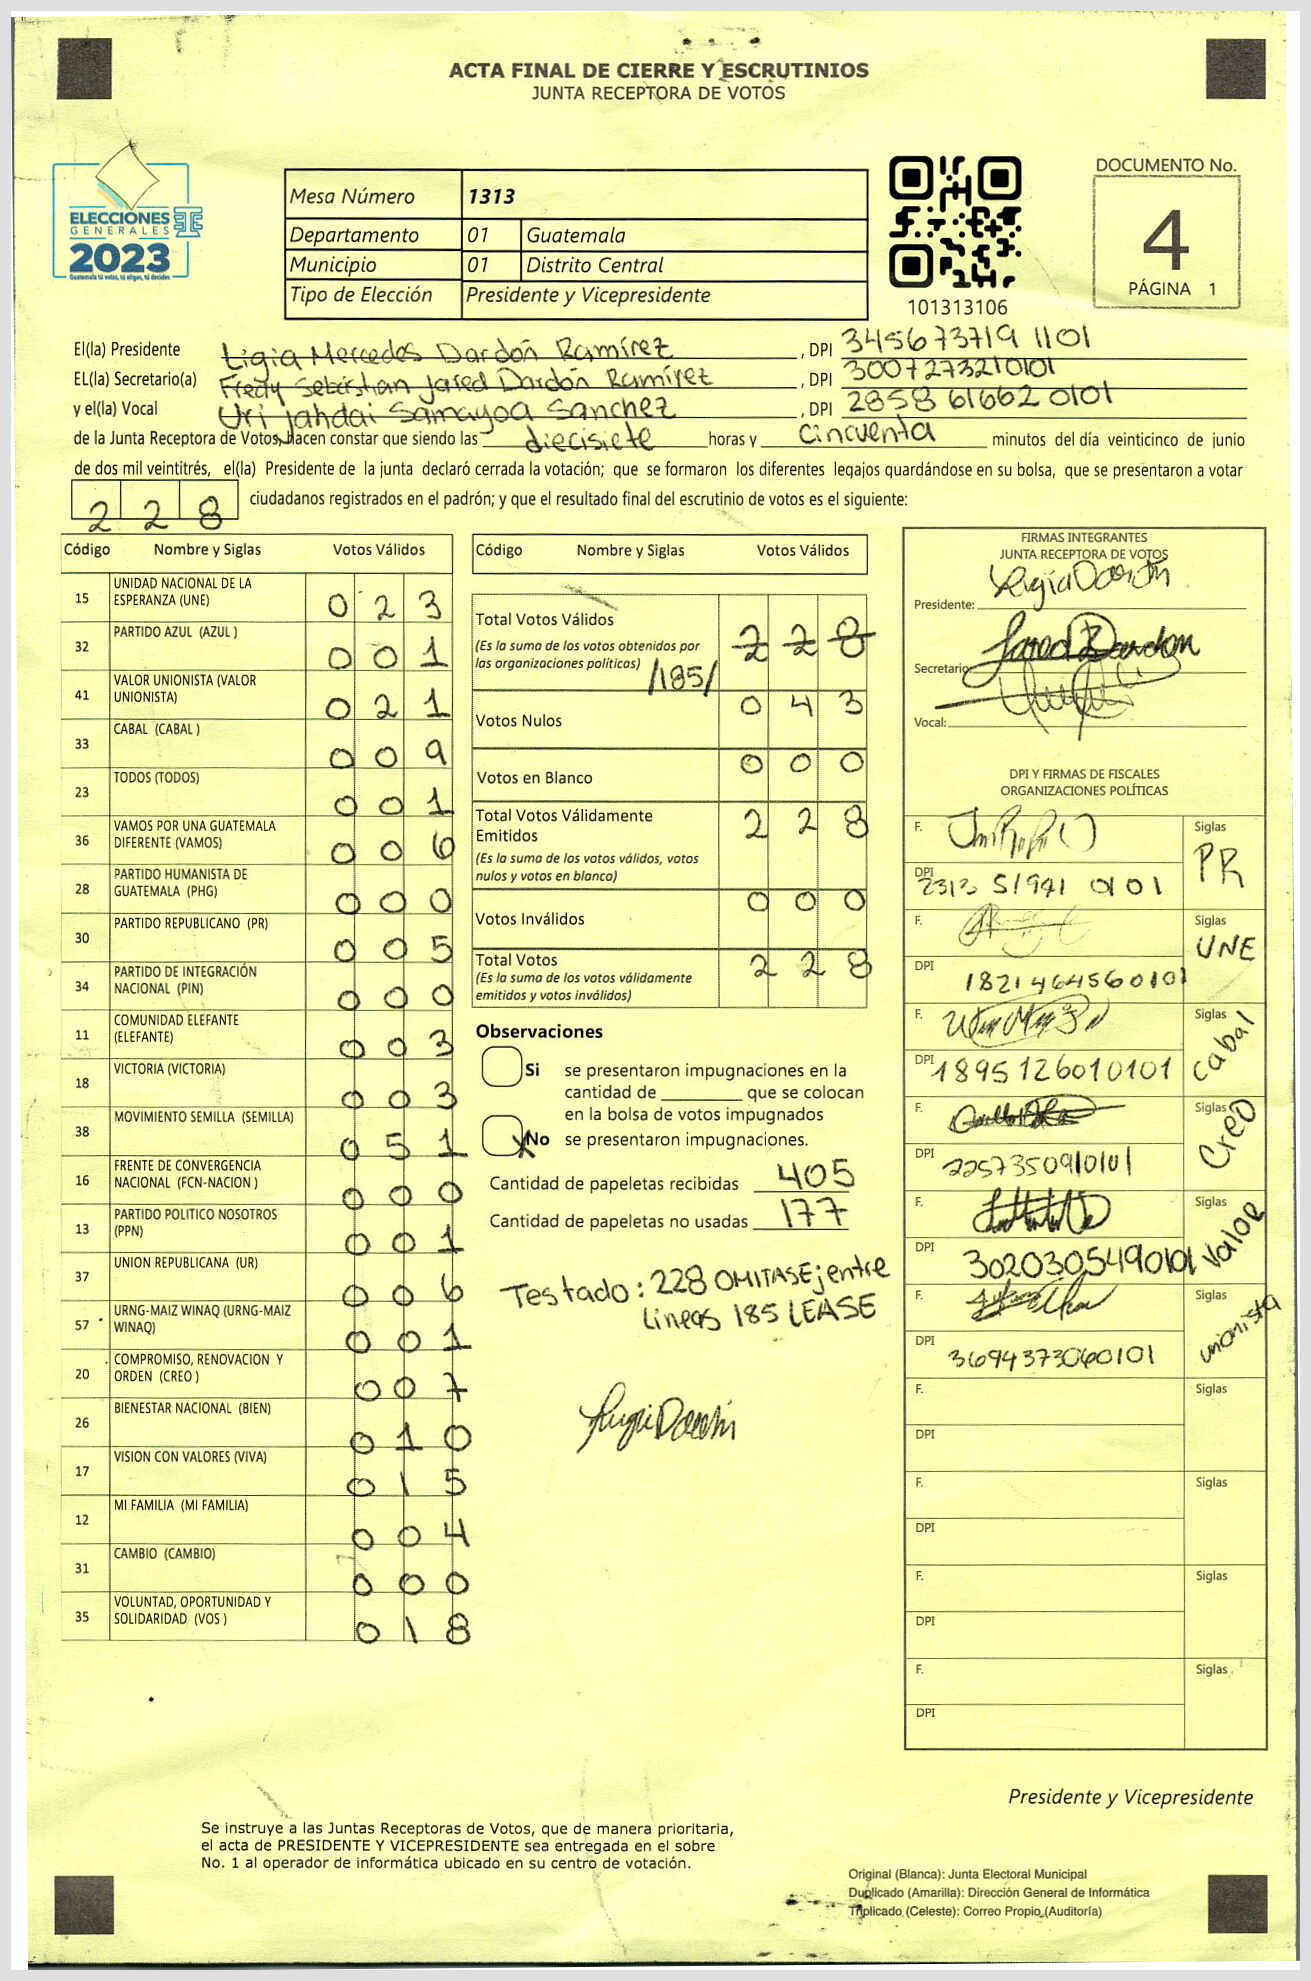 ACTA FINAL DE CIERRE Y ESCRUTINIOS
JUNTA RECEPTORA DE VOTOS
ELECCIONES
GENERALES
2023
Guatemala tú votas, tú eliges, tú decides
Mesa Número 1313
Departamento 01 Guatemala
Municipio 01 Distrito Central
Tipo de Elección Presidente y Vicepresidente
101313106
DOCUMENTO No.
4
PÁGINA 1
El(la) Presidente Ligia Mercedes Dardón Ramírez, DPI 345673719 1101
EL(la) Secretario(a) Fredy Sebastian Jared Dardón Ramírez, DPI 3007273210101
y el(la) Vocal Uri Jahdai Samayoa Sanchez, DPI 2858 61662 0101
de la Junta Receptora de Votos, hacen constar que siendo las diecisiete horas y cincuenta minutos del día veinticinco de junio
de dos mil veintitrés, el(la) Presidente de la junta declaró cerrada la votación; que se formaron los diferentes legajos quardándose en su bolsa, que se presentaron a votar
228 ciudadanos registrados en el padrón; y que el resultado final del escrutinio de votos es el siguiente:
Código Nombre y Siglas Votos Válidos
15 UNIDAD NACIONAL DE LA ESPERANZA (UNE) 0 2 3
32 PARTIDO AZUL (AZUL ) 0 0 1
41 VALOR UNIONISTA (VALOR UNIONISTA) 0 2 1
33 CABAL (CABAL ) 0 0 9
23 TODOS (TODOS) 0 0 1
36 VAMOS POR UNA GUATEMALA DIFERENTE (VAMOS) 0 0 6
28 PARTIDO HUMANISTA DE GUATEMALA (PHG) 0 0 0
30 PARTIDO REPUBLICANO (PR) 0 0 5
34 PARTIDO DE INTEGRACIÓN NACIONAL (PIN) 0 0 0
11 COMUNIDAD ELEFANTE (ELEFANTE) 0 0 3
18 VICTORIA (VICTORIA) 0 0 3
38 MOVIMIENTO SEMILLA (SEMILLA) 0 5 1
16 FRENTE DE CONVERGENCIA NACIONAL (FCN-NACION ) 0 0 0
13 PARTIDO POLITICO NOSOTROS (PPN) 0 0 1
37 UNION REPUBLICANA (UR) 0 0 6
57 URNG-MAIZ WINAQ (URNG-MAIZ WINAQ) 0 0 1
20 COMPROMISO, RENOVACION Y ORDEN (CREO ) 0 0 7
26 BIENESTAR NACIONAL (BIEN) 0 1 0
17 VISION CON VALORES (VIVA) 0 1 5
12 MI FAMILIA (MI FAMILIA) 0 0 4
31 CAMBIO (CAMBIO) 0 0 0
35 VOLUNTAD, OPORTUNIDAD Y SOLIDARIDAD (VOS ) 0 1 8
Código Nombre y Siglas Votos Válidos
Total Votos Válidos 2 2 8
(Es la suma de los votos obtenidos por
las organizaciones políticas) /185/
Votos Nulos 0 4 3
Votos en Blanco 0 0 0
Total Votos Válidamente
Emitidos 2 2 8
(Es la suma de los votos válidos, votos
nulos y votos en blanco)
Votos Inválidos 0 0 0
Total Votos 2 2 8
(Es la suma de los votos válidamente
emitidos y votos inválidos)
Observaciones
Si se presentaron impugnaciones en la
cantidad de que se colocan
en la bolsa de votos impugnados
X No se presentaron impugnaciones.
Cantidad de papeletas recibidas 405
Cantidad de papeletas no usadas 177
Testado: 228 OMITASE; entre
lineas 185 LEASE
FIRMAS INTEGRANTES
JUNTA RECEPTORA DE VOTOS
Presidente: Ligia Dardón
Secretario: Jared Dardon
Vocal:
DPI Y FIRMAS DE FISCALES
ORGANIZACIONES POLÍTICAS
F. Siglas PR
DPI 2312 51941 0101
F. Siglas UNE
DPI 1821464560101
F. Siglas Cabal
DPI 1895126010101
F. Siglas Creo
DPI 2257350910101
F. Siglas Valor
DPI 3020305490101
F. Siglas unionista
DPI 3694373060101
F. Siglas
DPI
F. Siglas
DPI
F. Siglas
DPI
F. Siglas
DPI
Presidente y Vicepresidente
Se instruye a las Juntas Receptoras de Votos, que de manera prioritaria,
el acta de PRESIDENTE Y VICEPRESIDENTE sea entregada en el sobre
No. 1 al operador de informática ubicado en su centro de votación.
Original (Blanca): Junta Electoral Municipal
Duplicado (Amarilla): Dirección General de Informática
Triplicado (Celeste): Correo Propio (Auditoría)